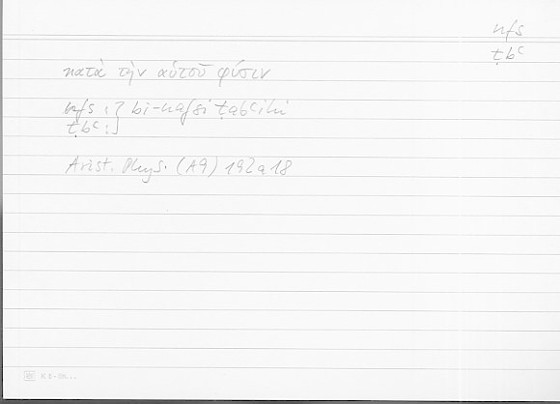 nfs
ṭbʿ
κατὰ τὴν αὑτοῦ φύσιν
nfs :} bi-nafsi ṭabʿihi
ṭbʿ :}
Arist. Phys. (A9) 192a18